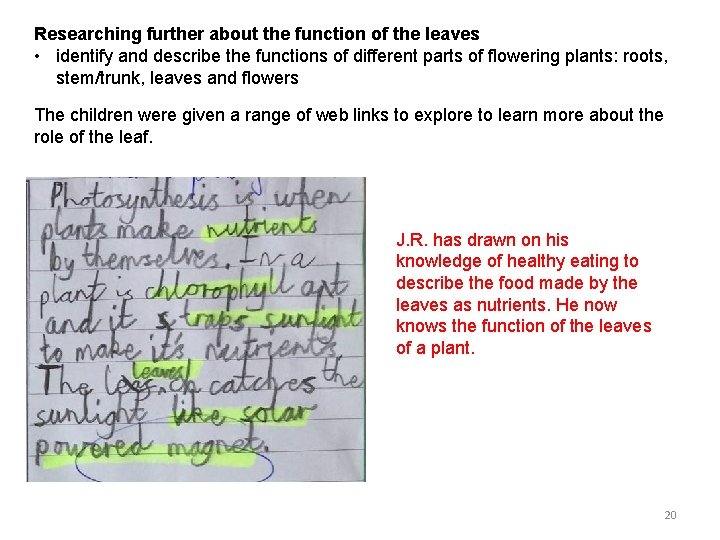 Researching further about the function of the leaves
• identify and describe the functions of different parts of flowering plants: roots,
stem/trunk, leaves and flowers
The children were given a range of web links to explore to learn more about the
role of the leaf.
Photosynthesis is when
plants make nutrients
by themselves. In a
plant is chlorophyll
and it traps sunlight
to make it's nutrients
leaves
The catches the
sunlight like solar
powered magnet.
J.R. has drawn on his
knowledge of healthy eating to
describe the food made by the
leaves as nutrients. He now
knows the function of the leaves
of a plant.
20